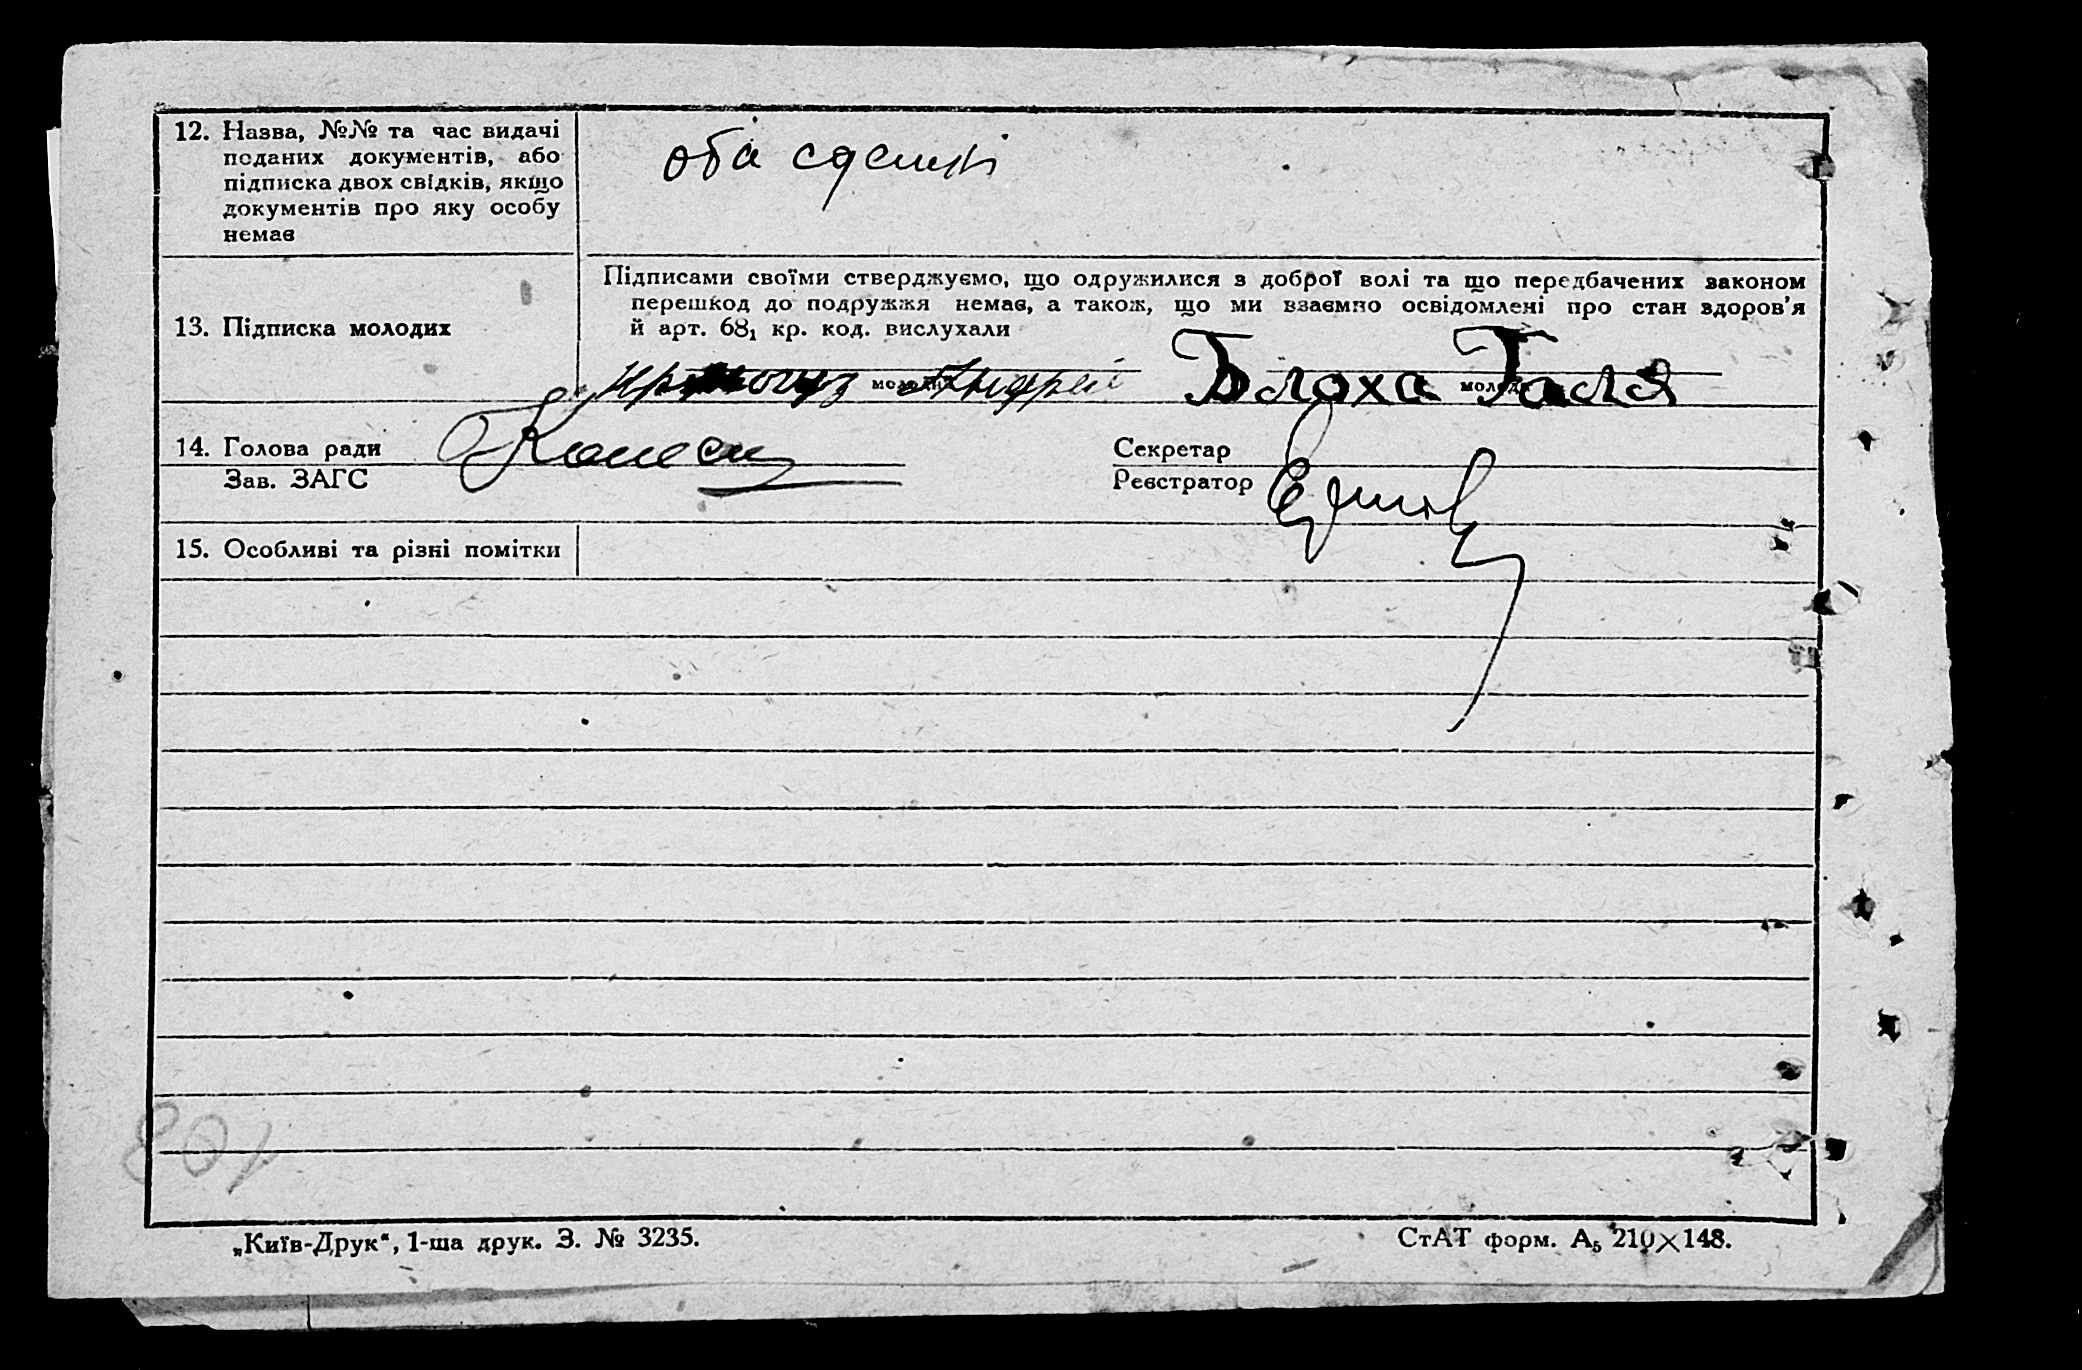 12. Назва, №№ та час видачі
поданих документів, або
підписка двох свідків, якщо
документів про яку особу
немає
оба
13. Підписка молодих
Підписами своїми стверджуємо, що одружилися з доброї волі та що передбачених законом
перешкод до подружжя немає, а також, що ми взаємно освідомлені про стан здоров'я
й арт. 68₁ кр. код. вислухали
Андрей Блоха Галя
14. Голова ради
Зав. ЗАГС
Секретар
Реєстратор
15. Особливі та різні помітки
108
„Київ-Друк“, 1-ша друк. З. № 3235.
СтАТ форм. А₅ 210×148.